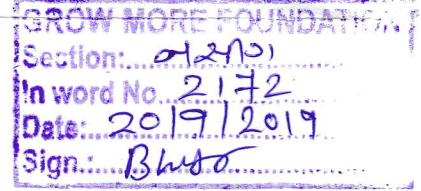 GROW MORE FOUNDATION
Section:
In word No. 2172
Date: 20/9/2019
Sign.: